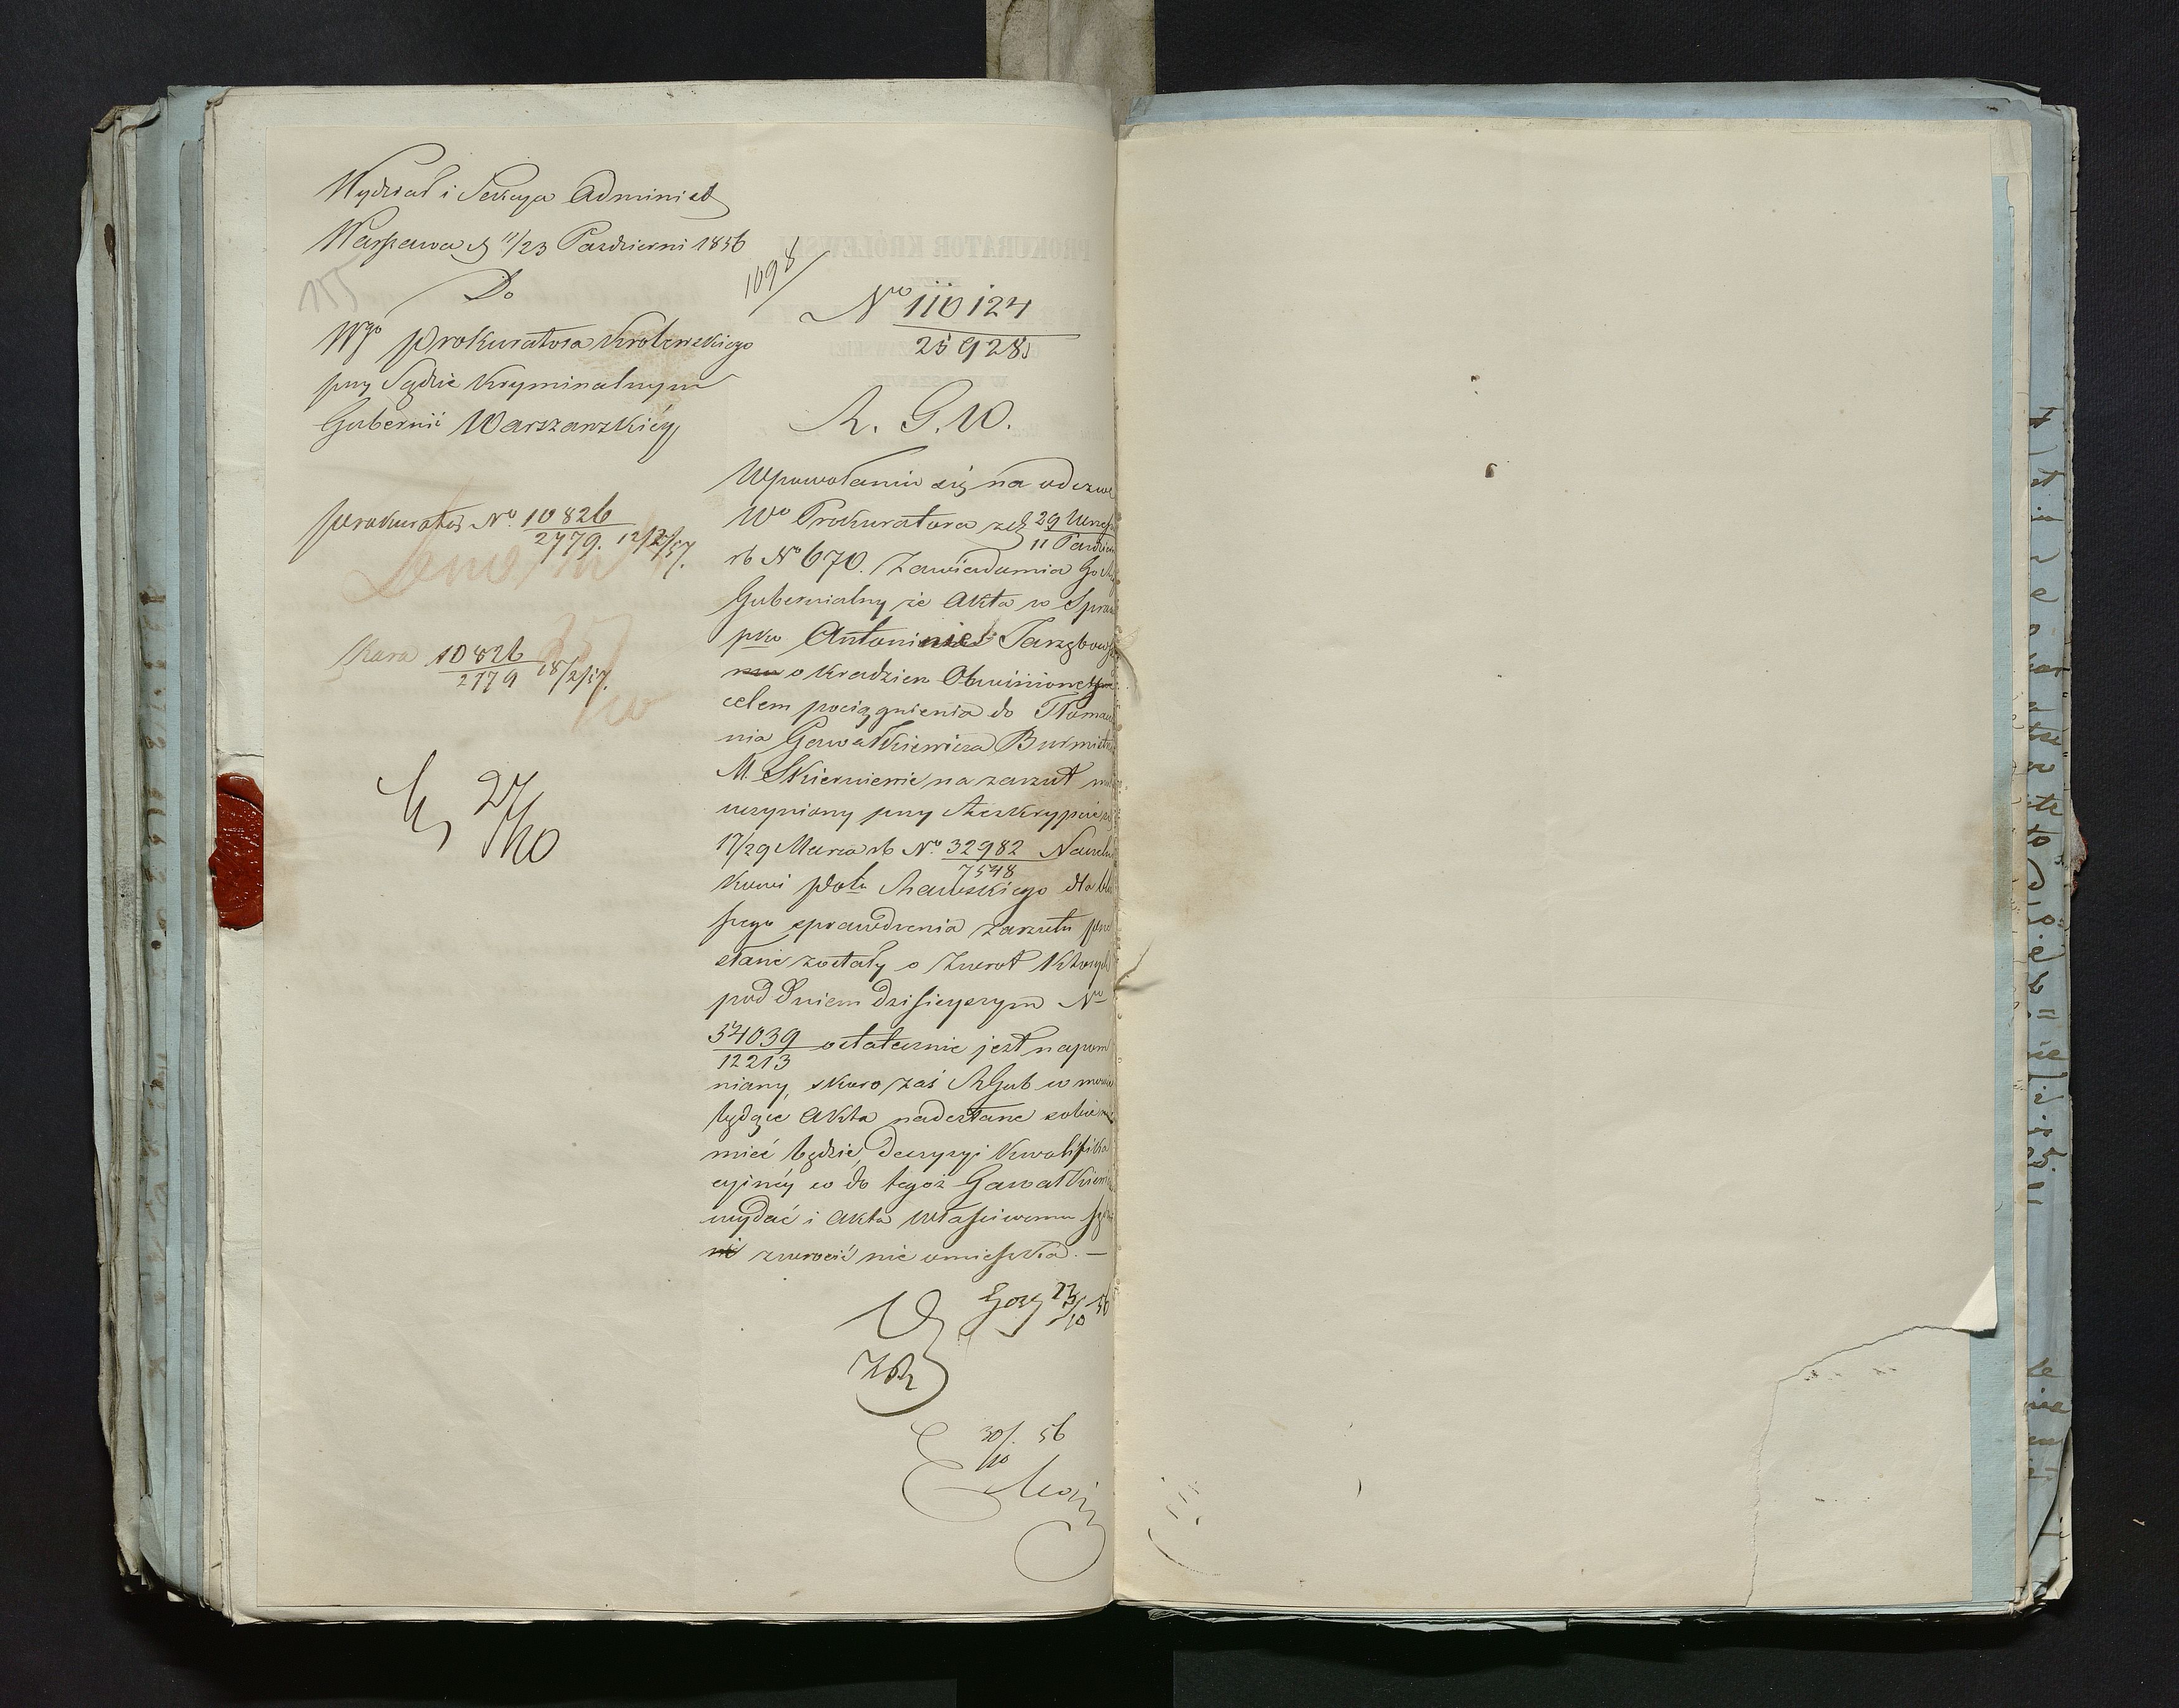 Wydział i Sekcya Administ
Warszawa d 11/23 Październi 1856
Do
Wgo Prokuratora Królewskiego
przy Sądzie Kryminalnym
Gubernii Warszawskiéy
Prokurator No. 10826
2779. 12/2/57.
Kara 10826
2779 18/2/57.
27/10
1098
No 110124
25928
R. G. W.
W powołaniu się na odezwę
Wo Prokuratora z d 29 Wrześ
11 Paździer
rb No 670. Zawiadamia
Gubernialny że Akta w Spra
pko Antoni Jarzębows
o kradzież Obwinione
celem pociągnienia do Tłomacze
nia Gawałkiewicza Burmistrza
M. Skierniewic na zarzut mu
uczyniony przy Reskrypcie z d
17/29 Marca rb No. 32982 Naczelni
7548
kowi Potu Rawskiego dla bliż
szego sprawdzenia zarzutu prze
słane zostały o zwrot których
pod dniem dzisieyszym No
34039 ostatecznie jest napom
12213
niany, skoro zaś RGub w mowie
będące Akta nadesłane sobie
mieć będzie, decyzyi kwalifika
cyinéy co do tegoż Gawałkiewi
wydać i akta właściwemu Sądo
wi zwrócić nie omieszka. —
23/10 56
30/10 56